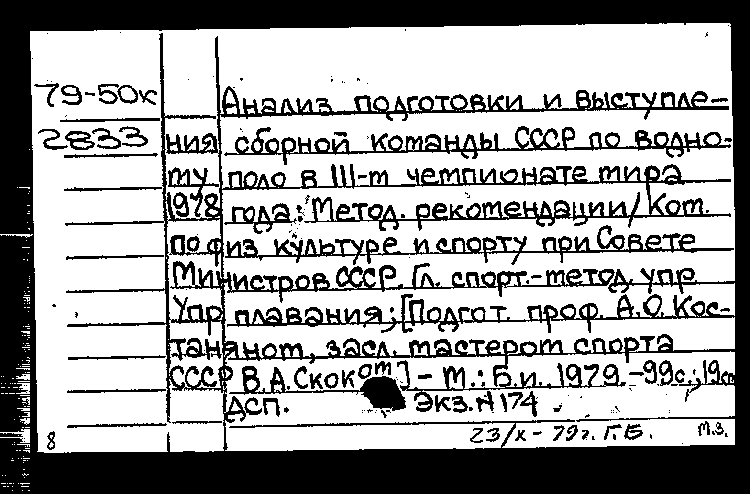 79-50к Анализ подготовки и выступле-
2833 ния сборной команды СССР по водно-
му поло в III-м чемпионате мира
1978 года: Метод. рекомендации/Ком.
по физ. культуре и спорту при Совете
Министров СССР. Гл. спорт.-метод. упр.
Упр. плавания; [Подгот. проф. А.О. Кос-
таняном, засл. мастером спорта
СССР В.А. Скоком] - М.: Б.и., 1979. -99с.; 19см
ДСП. Экз. № 174.
8 23/X-79г. Г.Б. М.З.